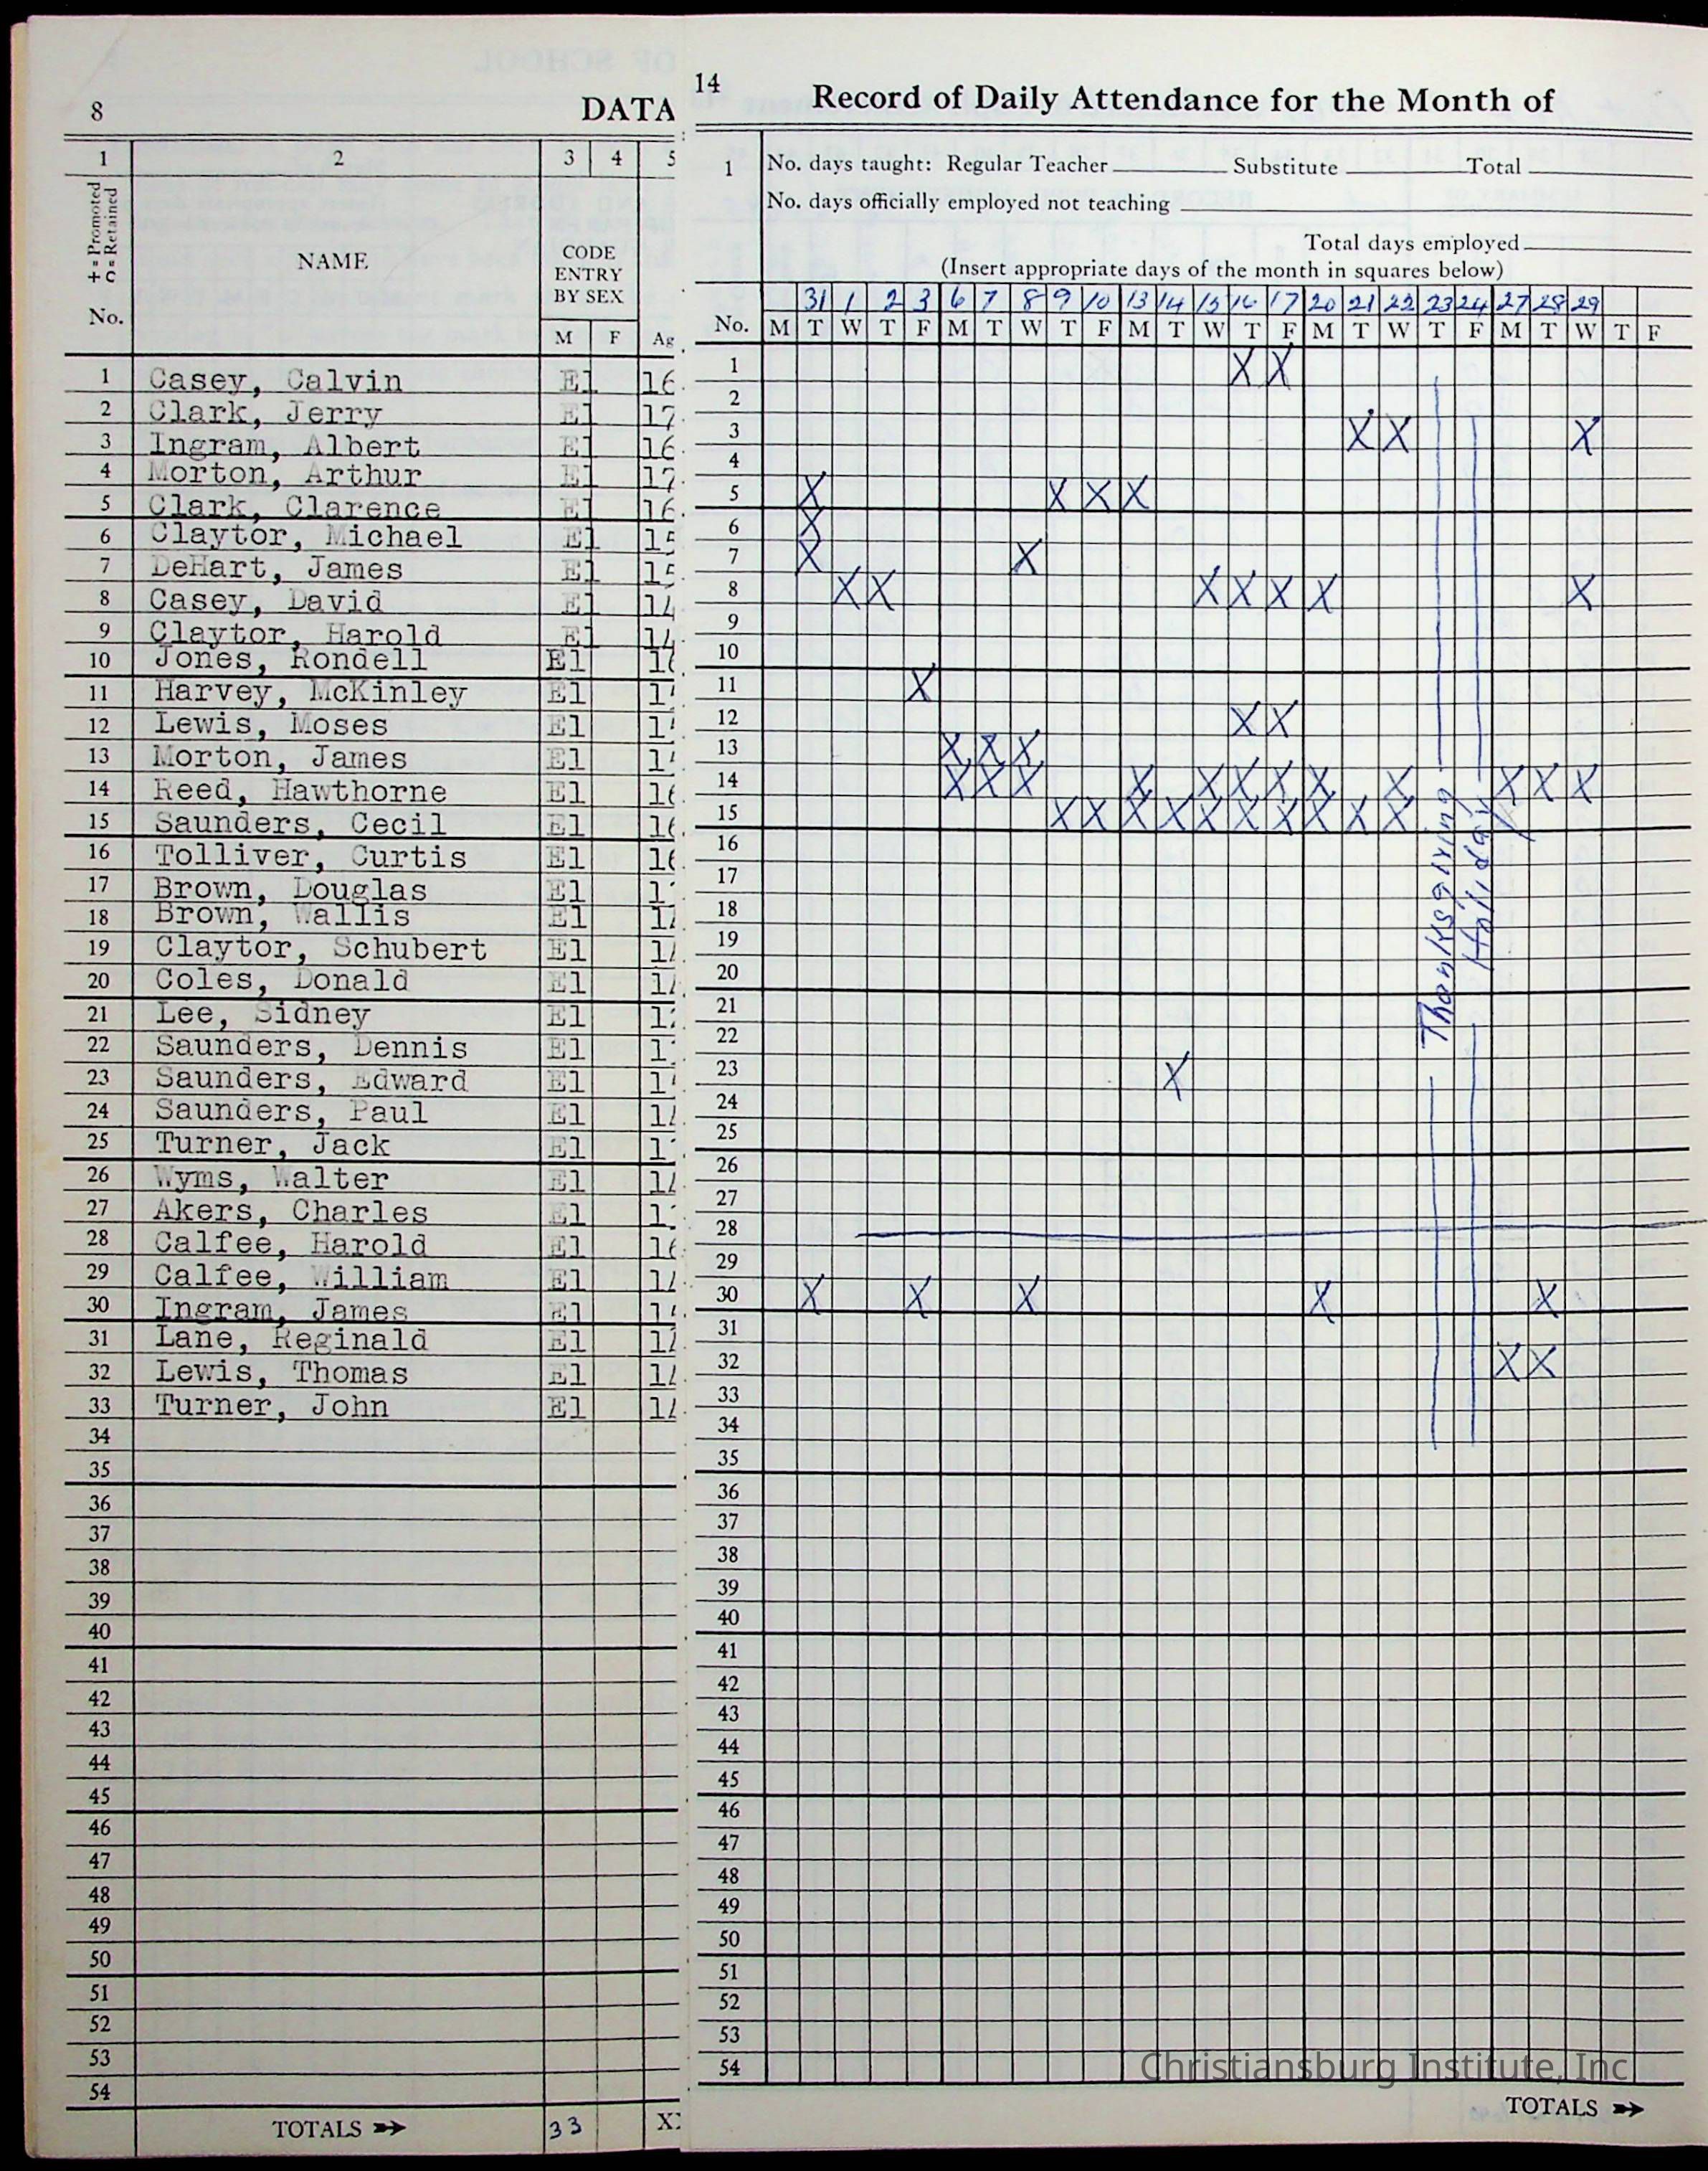 8 DATA
1 2 3 4 5
+ = Promoted
C = Retained
No.
NAME
CODE
ENTRY
BY SEX
M F Ag
1 Casey, Calvin El 16
2 Clark, Jerry El 17
3 Ingram, Albert El 16
4 Morton, Arthur El 17
5 Clark, Clarence El 16
6 Claytor, Michael El 15
7 DeHart, James El 15
8 Casey, David El 14
9 Claytor, Harold El 14
10 Jones, Rondell El
11 Harvey, McKinley El
12 Lewis, Moses El
13 Morton, James El
14 Reed, Hawthorne El
15 Saunders, Cecil El
16 Tolliver, Curtis El
17 Brown, Douglas El
18 Brown, Wallis El
19 Claytor, Schubert El
20 Coles, Donald El
21 Lee, Sidney El
22 Saunders, Dennis El
23 Saunders, Edward El
24 Saunders, Paul El
25 Turner, Jack El
26 Wyms, Walter El
27 Akers, Charles El
28 Calfee, Harold El
29 Calfee, William El
30 Ingram, James El
31 Lane, Reginald El
32 Lewis, Thomas El
33 Turner, John El
34
35
36
37
38
39
40
41
42
43
44
45
46
47
48
49
50
51
52
53
54
TOTALS 33
14
Record of Daily Attendance for the Month of
1 No. days taught: Regular Teacher Substitute Total
No. days officially employed not teaching
Total days employed
(Insert appropriate days of the month in squares below)
31 1 2 3 6 7 8 9 10 13 14 15 16 17 20 21 22 23 24 27 28 29
No. M T W T F M T W T F M T W T F M T W T F M T W T F
1 X X
2
3 X X X
4
5 X X X X
6 X
7 X X
8 X X X X X X X
9
10
11 X
12 X X
13 X X X
14 X X X X X X X X X X X X
15 X X X X X X X X X X
16
17
18
19
20
21
22
23 X
24
25
26
27
28
29
30 X X X X X
31
32 X X
33
34
35
36
37
38
39
40
41
42
43
44
45
46
47
48
49
50
51
52
53
54
Thanksgiving
Holiday
Christiansburg Institute, Inc
TOTALS